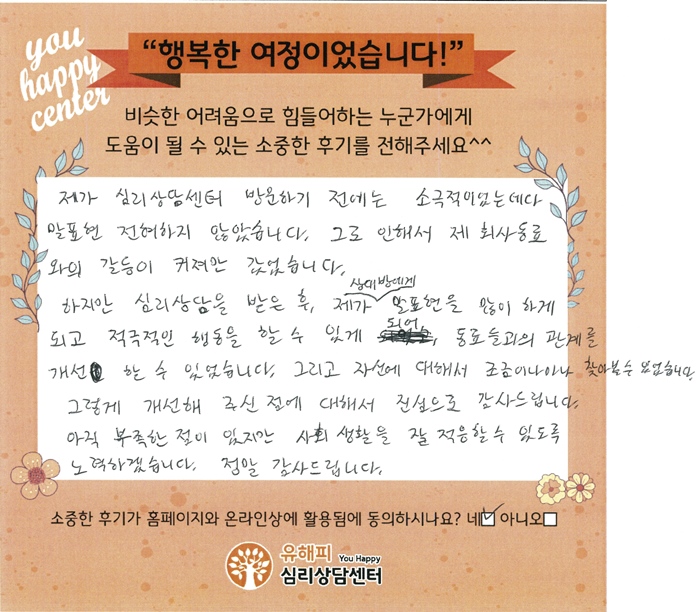 you
happy
center
“행복한 여정이었습니다!”
비슷한 어려움으로 힘들어하는 누군가에게
도움이 될 수 있는 소중한 후기를 전해주세요^^
제가 심리상담센터 방문하기 전에는 소극적이었는데다
말표현 전혀하지 않았습니다. 그로 인해서 제 회사동료
와의 갈등이 커져만 갔었습니다.
상대방에게
하지만 심리상담을 받은 후, 제가 말표현을 많이 하게
되고 적극적인 행동을 할 수 있게 되어, 동료들과의 관계를
개선 할 수 있었습니다. 그리고 자신에 대해서 조금이나마 찾아볼수 있었습니다
그렇게 개선해 주신 점에 대해서 진심으로 감사드립니다.
아직 부족한 점이 있지만 사회 생활을 잘 적응할수 있도록
노력하겠습니다. 정말 감사드립니다.
소중한 후기가 홈페이지와 온라인상에 활용됨에 동의하시나요? 네☑ 아니오☐
유해피 You Happy
심리상담센터